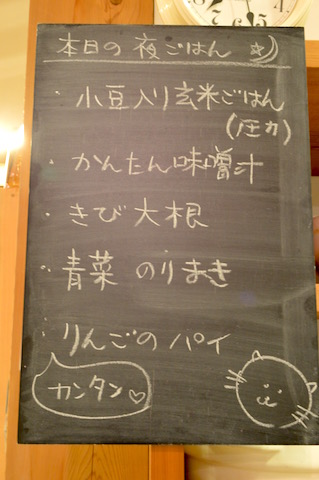 本日の夜ごはん
・小豆入り玄米ごはん
(圧力)
・かんたん味噌汁
・きび大根
・青菜 のりまき
・りんごのパイ
カンタン♡